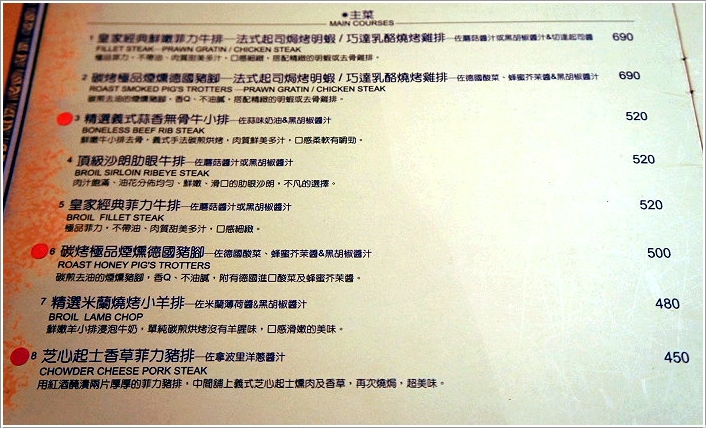 ●主菜
MAIN COURSES
1 皇家經典鮮嫩菲力牛排—法式起司焗烤明蝦 / 巧達乳酪燒烤雞排—佐蘑菇醬汁或黑胡椒醬汁&切達起司醬 690
FILLET STEAK—PRAWN GRATIN / CHICKEN STEAK
極品菲力，不帶油、肉質甜美多汁，口感細緻，搭配精緻的明蝦或去骨雞排。
2 碳烤極品煙燻德國豬腳—法式起司焗烤明蝦 / 巧達乳酪燒烤雞排—佐德國酸菜、蜂蜜芥茉醬&黑胡椒醬汁 690
ROAST SMOKED PIG'S TROTTERS —PRAWN GRATIN / CHICKEN STEAK
碳煎去油的煙燻豬腳，香Q、不油膩，搭配精緻的明蝦或去骨雞排。
3 精選義式蒜香無骨牛小排—佐蒜味奶油&黑胡椒醬汁 520
BONELESS BEEF RIB STEAK
鮮嫩牛小排去骨，義式手法碳煎烘烤，肉質鮮美多汁，口感柔軟有嚼勁。
4 頂級沙朗肋眼牛排—佐蘑菇醬汁或黑胡椒醬汁 520
BROIL SIRLOIN RIBEYE STEAK
肉汁飽滿、油花分佈均勻、鮮嫩、滑口的肋眼沙朗，不凡的選擇。
5 皇家經典菲力牛排—佐蘑菇醬汁或黑胡椒醬汁 520
BROIL FILLET STEAK
極品菲力，不帶油、肉質甜美多汁，口感細緻。
6 碳烤極品煙燻德國豬腳—佐德國酸菜、蜂蜜芥茉醬&黑胡椒醬汁 500
ROAST HONEY PIG'S TROTTERS
碳煎去油的煙燻豬腳，香Q、不油膩，附有德國進口酸菜及蜂蜜芥茉醬。
7 精選米蘭燒烤小羊排—佐米蘭薄荷醬&黑胡椒醬汁 480
BROIL LAMB CHOP
鮮嫩羊小排浸泡牛奶，單純碳煎烘烤沒有羊腥味，口感滑嫩的美味。
8 芝心起士香草菲力豬排—佐拿波里洋蔥醬汁 450
CHOWDER CHEESE PORK STEAK
用紅酒醃漬兩片厚厚的菲力豬排，中間舖上義式芝心起士燻肉及香草，再次燒焗，超美味。